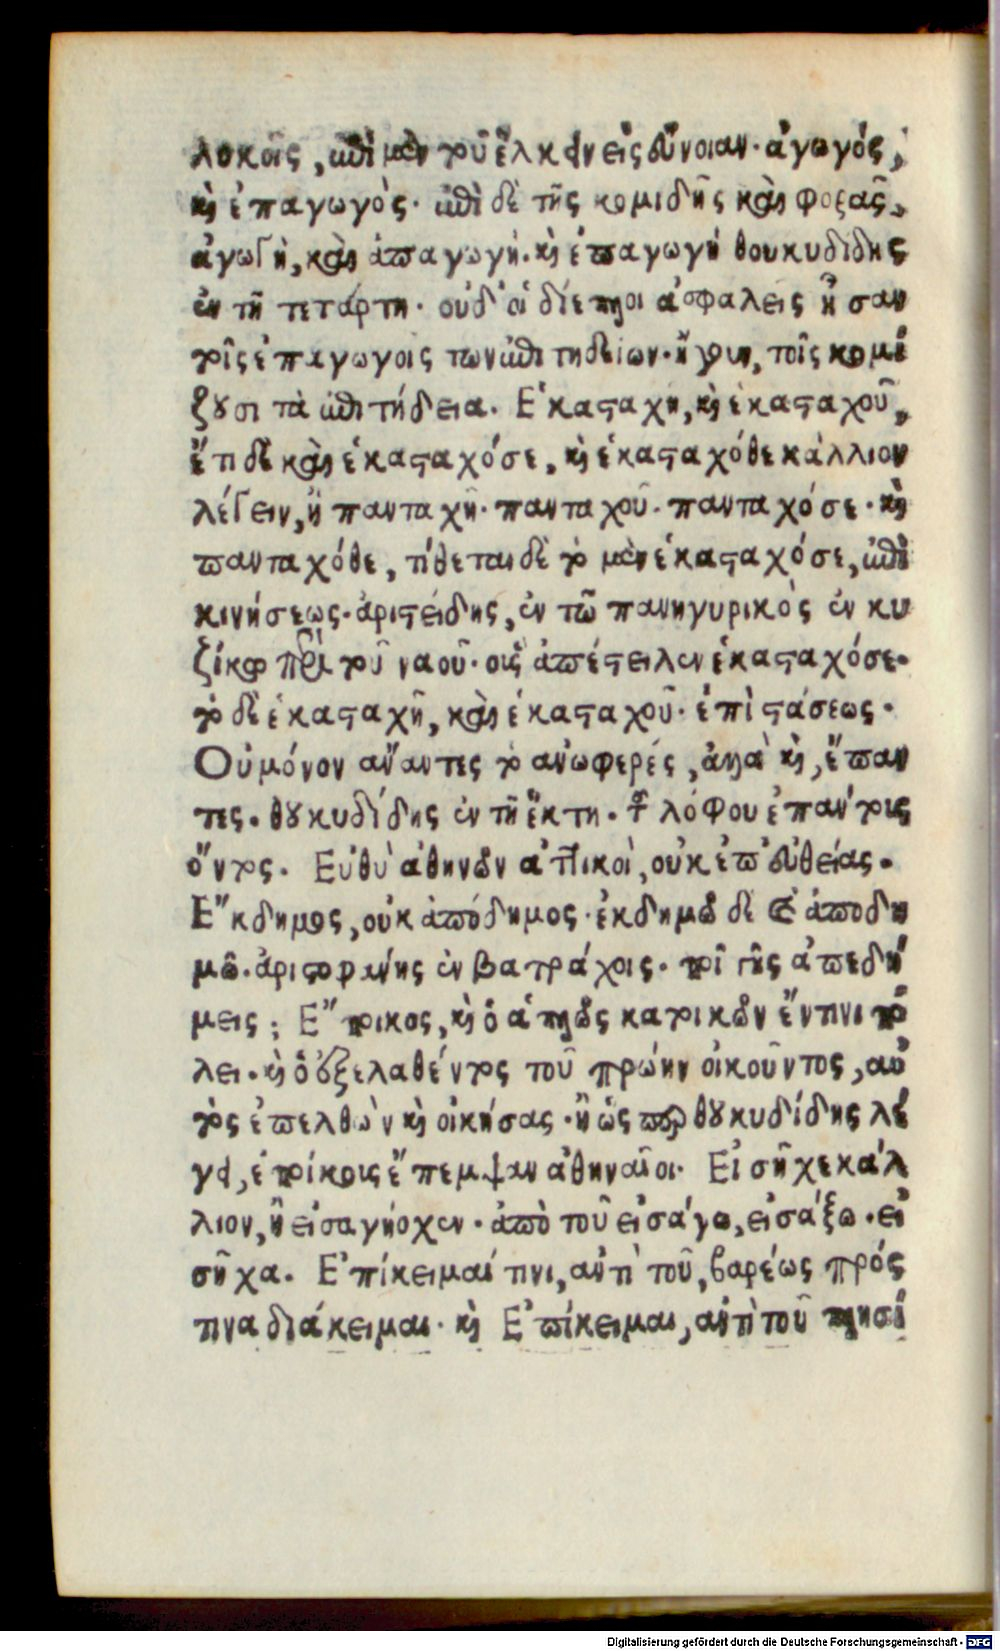 λοκοις, ἐπὶ μὲν τοῦ ἕλκειν εἰς εὔνοιαν· ἀγωγός,
καὶ ἐπαγωγὸς· ἐπὶ δὲ τῆς κομιδῆς καὶ φορᾶς,
ἀγωγὴ, καὶ ἀπαγωγή. καὶ ἐπαγωγή θουκυδίδης
ἐν τῇ τετάρτη. οὐδ' οἱ δίεπλοι ἀσφαλεῖς ἦσαν
τοῖς ἐπαγωγοις των ἐπιτηδείων. ἤγουν, τοῖς κομί
ζουσι τὰ ἐπιτήδεια. Ἑκασταχῆ, καὶ ἑκασταχοῦ,
ἔτι δὲ καὶ ἑκασταχόσε, καὶ ἑκασταχόθε κάλλιον
λέγειν, ἢ πανταχῆ. πανταχοῦ. πανταχόσε. καὶ
πανταχόθε, τίθεται δὲ τὸ μὲν ἑκασταχόσε, ἐπὶ
κινήσεως. ἀριστείδης, ἐν τῶ πανηγυρικὸς ἐν κυ
ζίκω περὶ τοῦ ναοῦ. οὓς ἀπέστειλεν ἑκασταχόσε.
τὸ δὲ ἑκασταχῆ, καὶ ἑκασταχοῦ. ἐπὶ στάσεως.
Οὐ μόνον ἄναντες τὸ ἀνωφερές, ἀλλὰ καὶ, ἔπαν
τες. θουκυδίδης ἐν τῇ ἕκτη. τοῦ λόφου ἐπάντους
ὄντος. Εὐθὺ ἀθηνῶν ἀττικοὶ, οὐκ ἐπ' εὐθείας.
Ἔκδημος, οὐκ ἀπόδημος. ἐκδημῶ δὲ καὶ ἀποδη
μῶ. ἀριστοφάνης ἐν βατράχοις. ποῖ γῆς ἀπεδή
μεις; Ἔποικος, καὶ ὁ ἁπλῶς κατοικῶν ἔν τινι πό
λει. καὶ ὁ ἐξελαθέντος τοῦ πρώην οἰκοῦντος, αὐ
τὸς ἐπελθὼν καὶ οἰκήσας. ἢ ὡς που θουκυδίδης λέ
γει, ἐποίκους ἔπεμψαν ἀθηναῖοι. Εἰσῆχε κάλ
λιον, ἢ εἰσαγήοχεν. ἀπὸ τοῦ εἰσάγω, εἰσάξω. εἰ
σῆχα. Ἐπίκειμαί τινι, ἀντὶ τοῦ, βαρέως πρός
τινα διάκειμαι. καὶ Ἐπίκειμαι, ἀντὶ τοῦ πλησί
Digitalisierung gefördert durch die Deutsche Forschungsgemeinschaft - DFG